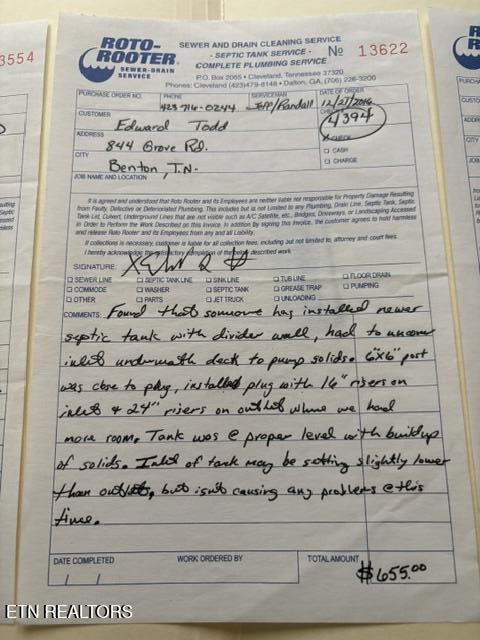 3554
ROTO-ROOTER®
SEWER-DRAIN SERVICE
SEWER AND DRAIN CLEANING SERVICE
- SEPTIC TANK SERVICE -
COMPLETE PLUMBING SERVICE
P.O. Box 2065 • Cleveland, Tennessee 37320
Phones: Cleveland (423)479-8148 • Dalton, GA. (706) 226-3200
No 13622
PURCHASE ORDER NO. PHONE SERVICEMAN DATE OF ORDER
423-716-0244 Jeff/Randall 12/27/2016
CUSTOMER
Edward Todd
4394
ADDRESS
844 Grove Rd.
CHECK
CASH
CHARGE
CITY
Benton, T.N.
JOB NAME AND LOCATION
It is agreed and understood that Roto Rooter and its Employees are neither liable nor responsible for Property Damage Resulting
from Faulty, Defective or Deteriorated Plumbing. This includes but is not limited to any Plumbing, Drain Line, Septic Tank, Septic
Tank Lid, Culvert, Underground Lines that are not visible such as A/C Satellite, etc., Bridges, Driveways, or Landscaping Accessed
in Order to Perform the Work Described on this Invoice. In Addition by signing this Invoice, the customer agrees to hold harmless
and release Roto Rooter and its Employees from any and all Liability.
If collections is necessary, customer is liable for all collection fees, including but not limited to, attorney and court fees.
I hereby acknowledge the satisfactory completion of the above described work.
SIGNATURE: X
SEWER LINE SEPTIC TANK LINE SINK LINE TUB LINE FLOOR DRAIN
COMMODE WASHER SEPTIC TANK GREASE TRAP PUMPING
OTHER PARTS JET TRUCK UNLOADING
COMMENTS: Found that someone has installed newer
septic tank with divider wall, had to uncover
inlet underneath deck to pump solids. 6"x6" post
was close to plug, installed plug with 16" risers on
inlet & 24" risers on outlet where we had
more room. Tank was @ proper level with buildup
of solids. Inlet of tank may be setting slightly lower
than outlet, but isnt causing any problems @ this
time.
DATE COMPLETED WORK ORDERED BY TOTAL AMOUNT
/ /
$655.00
ETN REALTORS